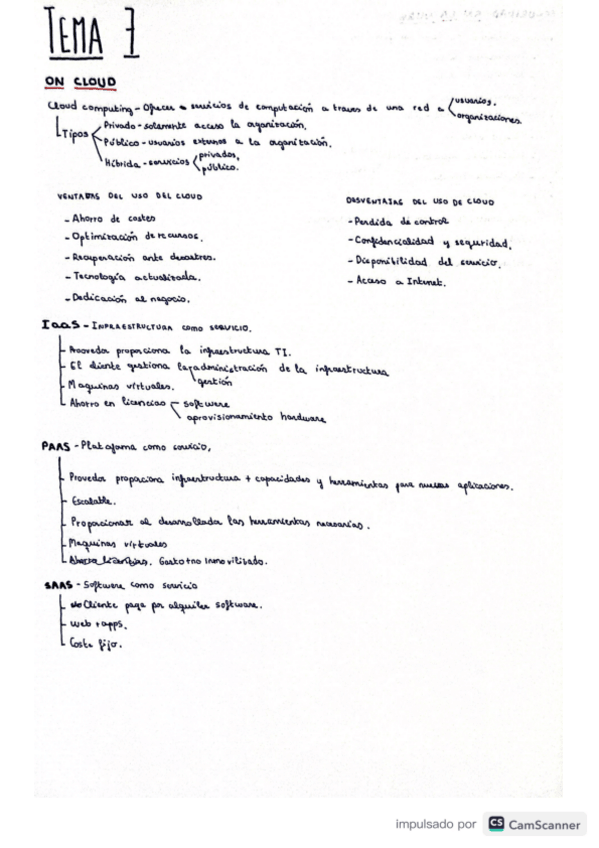 TEMA 7
ON CLOUD
Cloud computing - Ofrecer servicios de computación a traves de una red a usuarios.
organizaciones.
Tipos
Privado - solamente acceso la organización.
Público - usuarios externos a la organización.
Híbrida - servicios privados,
público.
VENTAJAS DEL USO DEL CLOUD
- Ahorro de costes
- Optimización de recursos.
- Recuperación ante desastres.
- Tecnología actualizada.
- Dedicación al negocio.
DESVENTAJAS DEL USO DE CLOUD
- Perdida de control
- Confidencialidad y seguridad.
- Disponibilidad del servicio.
- Acceso a Internet.
IaaS - INFRAESTRUCTURA COMO SERVICIO.
Proveedor proporciona la infraestructura TI.
El cliente gestiona la administración de la infraestructura
gestión
Maquinas virtuales.
Ahorro en licencias software
aprovisionamiento hardware
PAAS - Plataforma como servicio,
Provedor proporciona infraestructura + capacidades y herramientas para nuevas aplicaciones.
Escalable.
Proporcionar al desarrollador las herramientas necesarias.
Maquinas virtuales
Ahorro licencias. Gasto no inmovilizado.
SAAS - Software como servicio
Cliente paga por alquiler software.
Web + apps.
Coste fijo.
impulsado por CS CamScanner